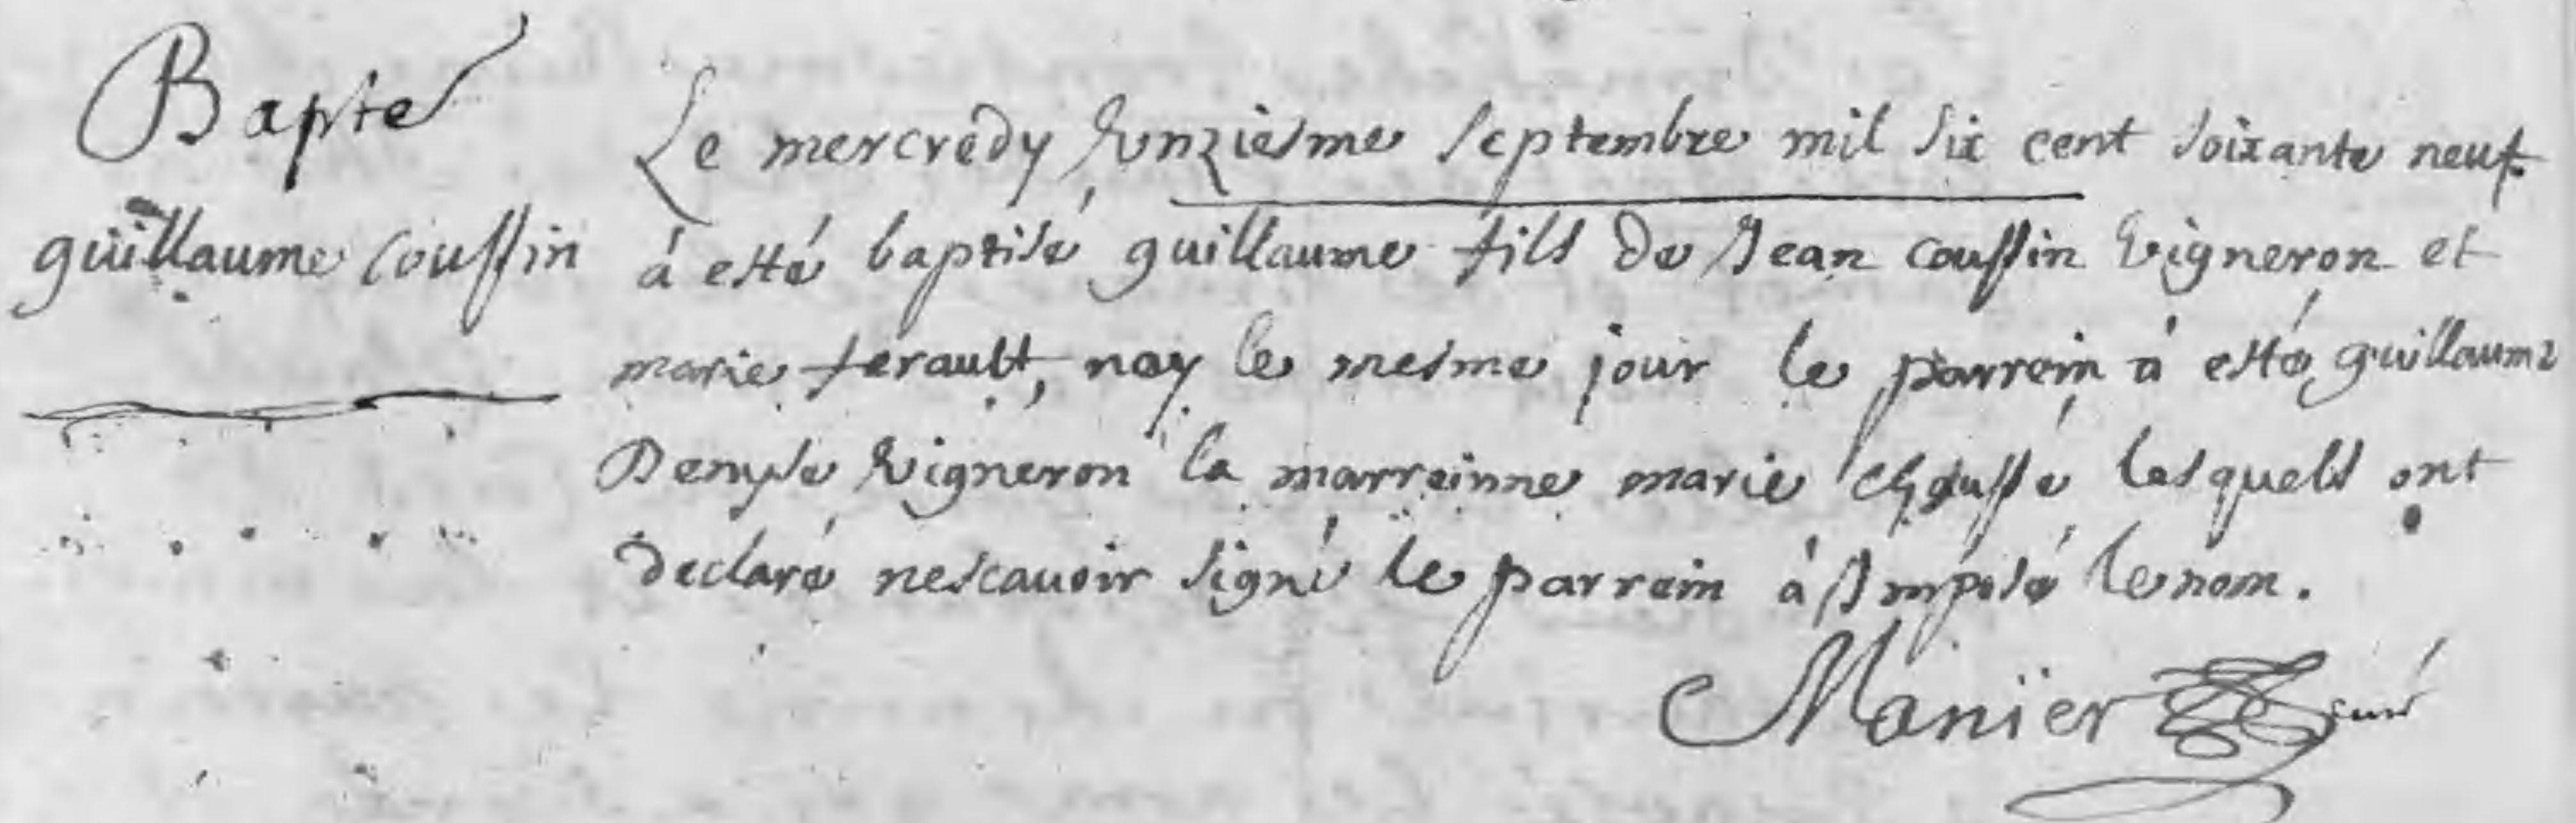 Bapte
guillaume coussin
Le mercredy Unziesme septembre mil six cent soixante neuf
à esté baptisé guillaume fils de Jean coussin Vigneron et
marie ferault, nay le mesme jour le parrein à esté guillaume
Vigneron la marreinne marie lesquels ont
declaré nescauoir signé le parrein à Imposé le nom.
Manïer curé